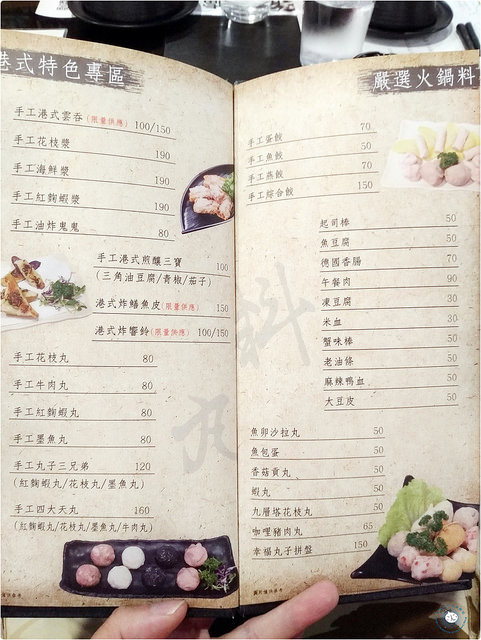 港式特色專區
手工港式雲吞(限量供應) 100/150
手工花枝漿 190
手工海鮮漿 190
手工紅麴蝦漿 190
手工油炸鬼鬼 80
手工港式煎釀三寶 100
(三角油豆腐/青椒/茄子)
港式炸鱔魚皮(限量供應) 150
港式炸響鈴(限量供應) 100/150
手工花枝丸 80
手工牛肉丸 80
手工紅麴蝦丸 80
手工墨魚丸 80
手工丸子三兄弟 120
(紅麴蝦丸/花枝丸/墨魚丸)
手工四大天丸 160
(紅麴蝦丸/花枝丸/墨魚丸/牛肉丸)
圖片僅供參考
嚴選火鍋料
手工蛋餃 70
手工魚餃 50
手工燕餃 70
手工綜合餃 150
起司棒 50
魚豆腐 50
德國香腸 70
午餐肉 90
凍豆腐 30
米血 30
蟹味棒 50
老油條 50
麻辣鴨血 50
大豆皮 50
魚卵沙拉丸 50
魚包蛋 50
香菇貢丸 50
蝦丸 50
九層塔花枝丸 50
咖哩豬肉丸 65
幸福丸子拼盤 150
圖片僅供參考